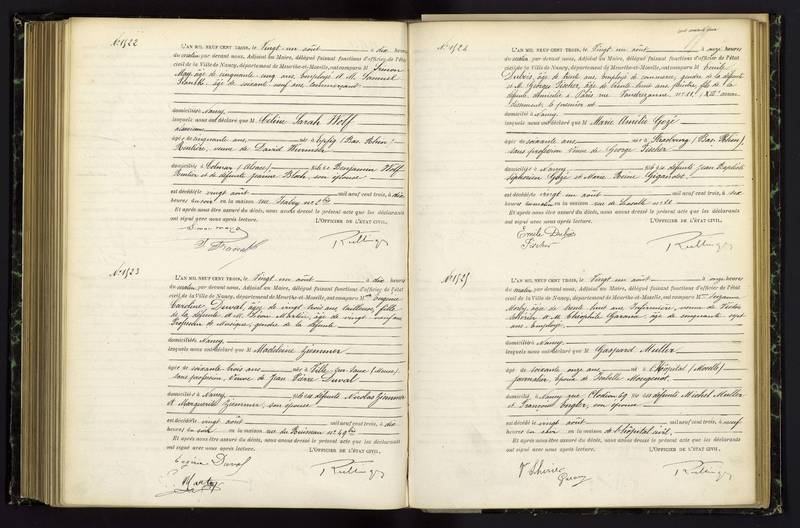 N° 1522
L'AN MIL NEUF CENT TROIS, le Vingt-un août à dix heures
du matin par devant nous, Adjoint au Maire, délégué faisant fonctions d'officier de l'état
civil de la Ville de Nancy, département de Meurthe-et-Moselle, ont comparu M. Simon
May, âgé de cinquante cinq ans, employé et M. Samuel
âgé de soixante neuf ans,
domiciliés Nancy
lesquels nous ont déclaré que M. Céline Sarah Wolf
âgée de cinquante ans, née à Epfig (Bas-Rhin)
Rentière, veuve de David
domiciliée à Colmar (Alsace) fille de Benjamin Wolf
Rentier et de défunte Jeanne Bloch, son épouse
est décédée vingt août mil neuf cent trois, à dix
heures du soir en la maison rue Isabey n° 2 bis
Et après nous être assuré du décès, nous avons dressé le présent acte que les déclarants
ont signé avec nous après lecture. L'OFFICIER DE L'ÉTAT CIVIL,
Simon May
N° 1523
L'AN MIL NEUF CENT TROIS, le Vingt-un août à dix heures
du matin par devant nous, Adjoint au Maire, délégué faisant fonctions d'officier de l'état
civil de la Ville de Nancy, département de Meurthe-et-Moselle, ont comparu M. Eugénie
Caroline Duval, âgée de vingt trois ans tailleuse, fille
de la défunte et M. Martin, âgé de vingt ans
Professeur de Musique, gendre de la défunte
domiciliés Nancy
lesquels nous ont déclaré que M. Madeleine Ziemmer
âgée de soixante trois ans née à Ville-sur-Saulx (Meuse)
sans profession, Veuve de Jean Pierre Duval
domiciliée à Nancy fille de défunts Nicolas Ziemmer
et Marguerite Ziemmer, son épouse
est décédée vingt août mil neuf cent trois, à dix
heures du soir en la maison rue du Buisson n° 49 bis
Et après nous être assuré du décès, nous avons dressé le présent acte que les déclarants
ont signé avec nous après lecture. L'OFFICIER DE L'ÉTAT CIVIL,
Eugénie Duval
N° 1524
L'AN MIL NEUF CENT TROIS, le Vingt-un août à onze heures
du matin par devant nous, Adjoint au Maire, délégué faisant fonctions d'officier de l'état
civil de la Ville de Nancy, département de Meurthe-et-Moselle, ont comparu M. Emile
Dubois, âgé de trente ans, employé de commerce, gendre de la défunte
et M. Georges Fischer, âgé de trente huit ans, fils de la
défunte, domicilié à Paris rue
le premier est
domicilié à Nancy
lesquels nous ont déclaré que M. Marie Amélie Gozé
âgée de soixante ans née à Strasbourg (Bas-Rhin)
sans profession Veuve de George Fischer
domiciliée à Nancy fille de défunts Jean Baptiste
Alphonse Gozé et Marie Reine
est décédée vingt un août mil neuf cent trois, à dix
heures du matin en la maison rue de Lasalle n° 11
Et après nous être assuré du décès, nous avons dressé le présent acte que les déclarants
ont signé avec nous après lecture. L'OFFICIER DE L'ÉTAT CIVIL,
Emile Dubois
Fischer
N° 1525
L'AN MIL NEUF CENT TROIS, le Vingt-un août à onze heures
du matin par devant nous, Adjoint au Maire, délégué faisant fonctions d'officier de l'état
civil de la Ville de Nancy, département de Meurthe-et-Moselle, ont comparu M.
âgée de trente huit ans Infirmière, veuve de Victor
et M. Théophile âgé de cinquante sept
ans, employé
domiciliés Nancy
lesquels nous ont déclaré que M. Gaspard Muller
âgé de soixante onze ans né à l'Hôpital (Moselle)
Journalier, époux de Isabelle Mougenot
domicilié à Nancy rue Clodion 69 fils de défunts Michel Muller
et Françoise Engler, son épouse
est décédé le vingt août mil neuf cent trois, à neuf
heures du soir en la maison de l'hôpital civil
Et après nous être assuré du décès, nous avons dressé le présent acte que les déclarants
ont signé avec nous après lecture. L'OFFICIER DE L'ÉTAT CIVIL,